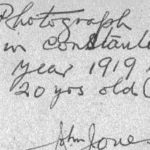 Photograph
in Constant
Year 1919
20 yrs old (
John Jone